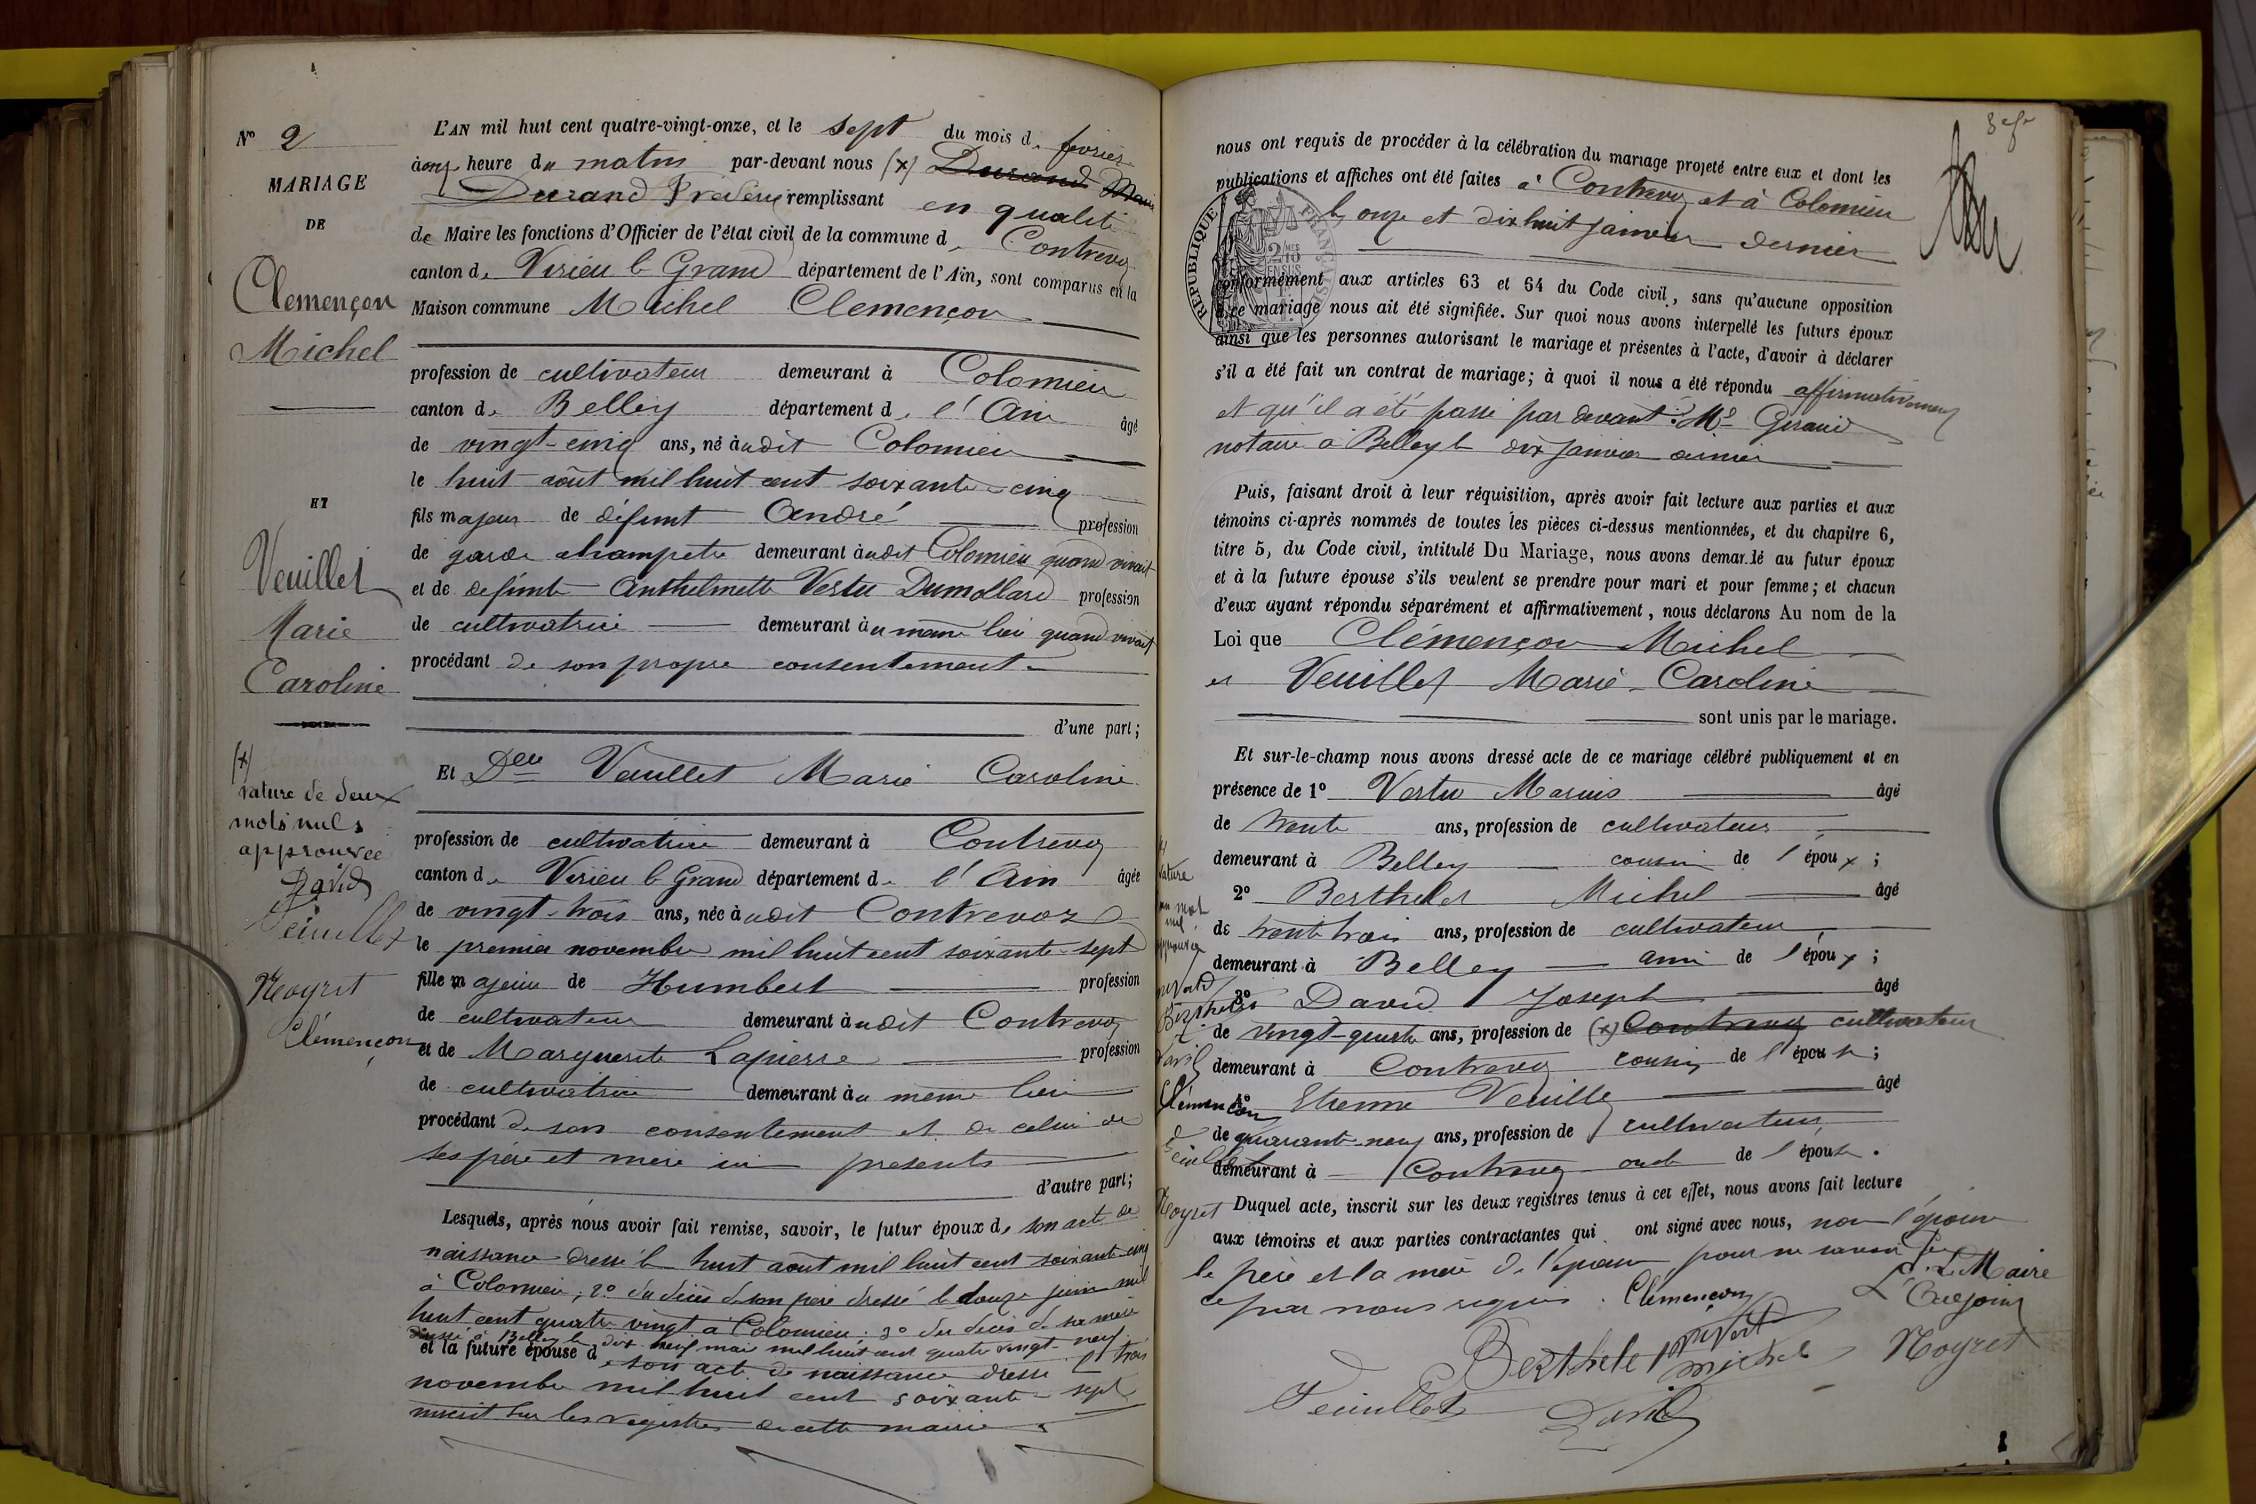 N° 2
MARIAGE
DE
Clemençon
Michel
ET
Veuillet
Marie
Caroline
(x)
rature de deux
mots nuls
approuvée
David
Veuillet
Noyret
Clémençon
L'AN mil huit cent quatre-vingt-onze, et le sept du mois de février
à onze heure du matin par-devant nous (x) Durand Maire
Durand Fréderic remplissant en qualité
de Maire les fonctions d'Officier de l'état civil de la commune de Contrevoz
canton de Virieu le Grand département de l'Ain, sont comparus en la
Maison commune Michel Clemençon
profession de cultivateur demeurant à Colomieu
canton de Belley département de l'Ain âgé
de vingt-cinq ans, né audit Colomieu
le huit août mil huit cent soixante-cinq
fils majeur de défunt André profession
de garde champetre demeurant audit Colomieu quand vivait
et de defunte Anthelmette Vertu Dumollard profession
de cultivatrice demeurant au meme lieu quand vivait
procédant de son propre consentement
d'une part;
Et Delle Veuillet Marie Caroline
profession de cultivatrice demeurant à Contrevoz
canton de Virieu le Grand département de l'Ain âgée
de vingt-trois ans, née audit Contrevoz
le premier novembre mil huit cent soixante-sept
fille majeure de Humbert profession
de cultivateur demeurant audit Contrevoz
et de Marguerite Lapierre profession
de cultivatrice demeurant au meme lieu
procédant de son consentement et de celui de
ses père et mère ici presents
d'autre part;
Lesquels, après nous avoir fait remise, savoir, le futur époux de son acte de
naissance dressé le huit août mil huit cent soixante cinq
à Colomieu; 2° du décès de son père dressé le douze juin mil
huit cent quatre vingt à Colomieu; 3° du décès de sa mère
dressé à Belley le dix neuf mai mil huit cent quatre vingt-neuf
et la future épouse de son acte de naissance dressé le trois
novembre mil huit cent soixante-sept
inscrit sur les registres de cette mairie
nous ont requis de procéder à la célébration du mariage projeté entre eux et dont les
publications et affiches ont été faites à Contrevoz et à Colomieu
le onze et dix huit janvier dernier
REPUBLIQUE FRANÇAISE
conformément aux articles 63 et 64 du Code civil, sans qu'aucune opposition
à ce mariage nous ait été signifiée. Sur quoi nous avons interpellé les futurs époux
ainsi que les personnes autorisant le mariage et présentes à l'acte, d'avoir à déclarer
s'il a été fait un contrat de mariage; à quoi il nous a été répondu affirmativement
et qu'il a été passé par devant Me Giraud
notaire à Belley le dix janvier dernier
Puis, faisant droit à leur réquisition, après avoir fait lecture aux parties et aux
témoins ci-après nommés de toutes les pièces ci-dessus mentionnées, et du chapitre 6,
titre 5, du Code civil, intitulé Du Mariage, nous avons demandé au futur époux
et à la future épouse s'ils veulent se prendre pour mari et pour femme; et chacun
d'eux ayant répondu séparément et affirmativement, nous déclarons Au nom de la
Loi que Clémençon Michel
et Veuillet Marie-Caroline
sont unis par le mariage.
Et sur-le-champ nous avons dressé acte de ce mariage célébré publiquement et en
présence de 1° Vertu Marius âgé
de trente ans, profession de cultivateur
demeurant à Belley cousin de l'époux;
2° Berthelet Michel âgé
de trente trois ans, profession de cultivateur
demeurant à Belley ami de l'époux;
3° David Joseph âgé
de vingt-quatre ans, profession de (x) Contrevoz cultivateur
demeurant à Contrevoz cousin de l'épouse;
4° Etienne Veuillet âgé
de quarante-neuf ans, profession de cultivateur
demeurant à Contrevoz oncle de l'épouse.
Duquel acte, inscrit sur les deux registres tenus à cet effet, nous avons fait lecture
aux témoins et aux parties contractantes qui ont signé avec nous, non l'épouse
le père et la mère de l'épouse pour ne savoir
ce par nous requis. Clémençon
Le Maire
Berthelet michel
Noyret
Veuillet
David
rature
un mot
nul
approuvée
Berthelet
David
Clémençon
Veuillet
Noyret